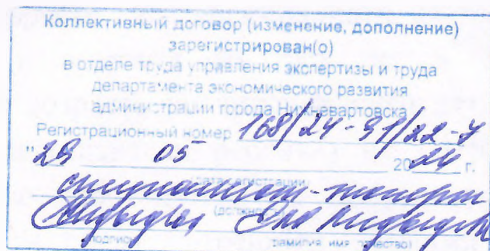 Коллективный договор (изменение, дополнение)
зарегистрирован(о)
в отделе труда управления экспертизы и труда
департамента экономического развития
администрации города Нижневартовска
Регистрационный номер 168/24-91/22-7
"29 05 2024 г.
дата регистрации
специалист-эксперт
(должность)
подпись фамилия имя отчество)